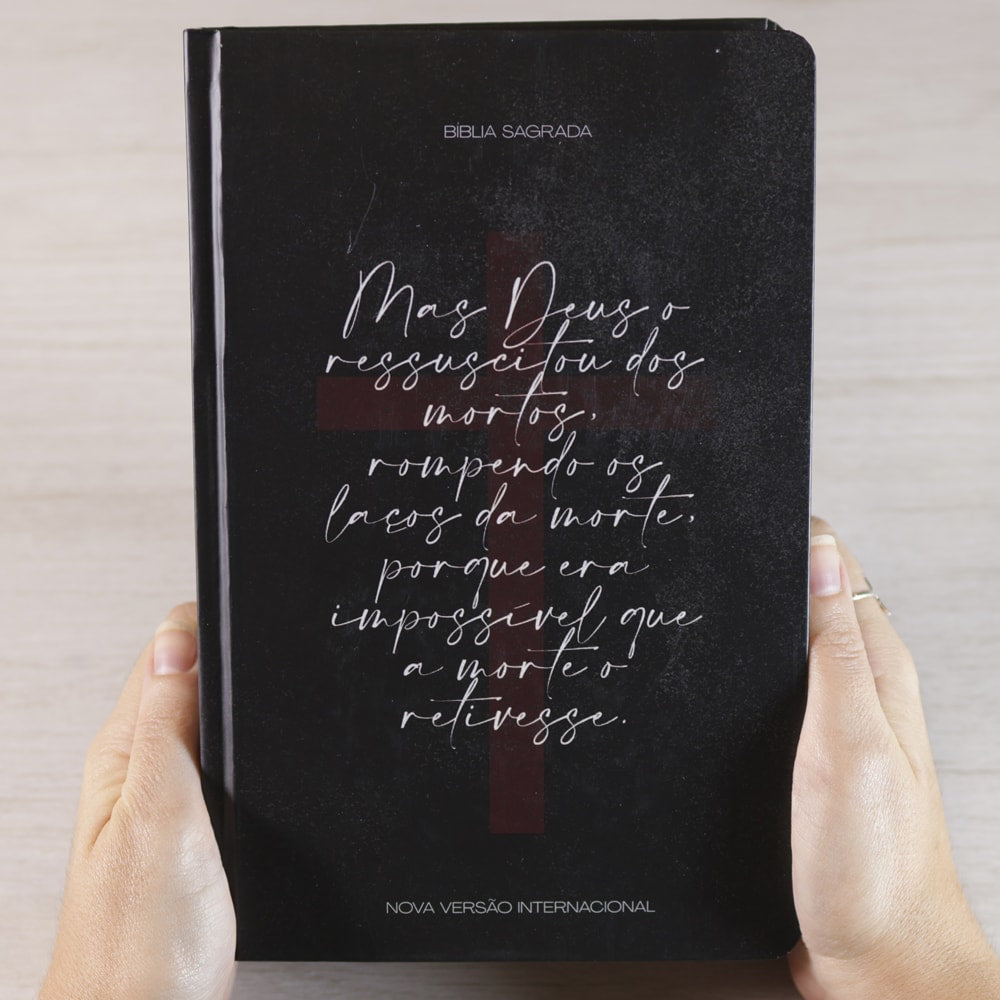 BÍBLIA SAGRADA
Mas Deus o
ressuscitou dos
mortos,
rompendo os
laços da morte,
porque era
impossível que
a morte o
retivesse.
NOVA VERSÃO INTERNACIONAL